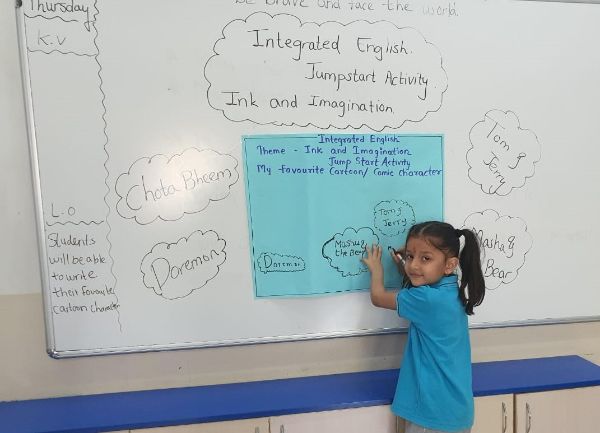 Thursday
be brave and face the world.
K.V
Integrated English.
Jumpstart Activity
Ink and Imagination
Integrated English
Theme - Ink and Imagination
Jump Start Activity
My favourite Cartoon/ Comic character
Chota Bheem
Tom &
Jerry
Tom &
Jerry
Masha &
the Bear
Doremon
L.O
Students
will be able
to write
their favourite
cartoon character
Doremon
Masha &
Bear